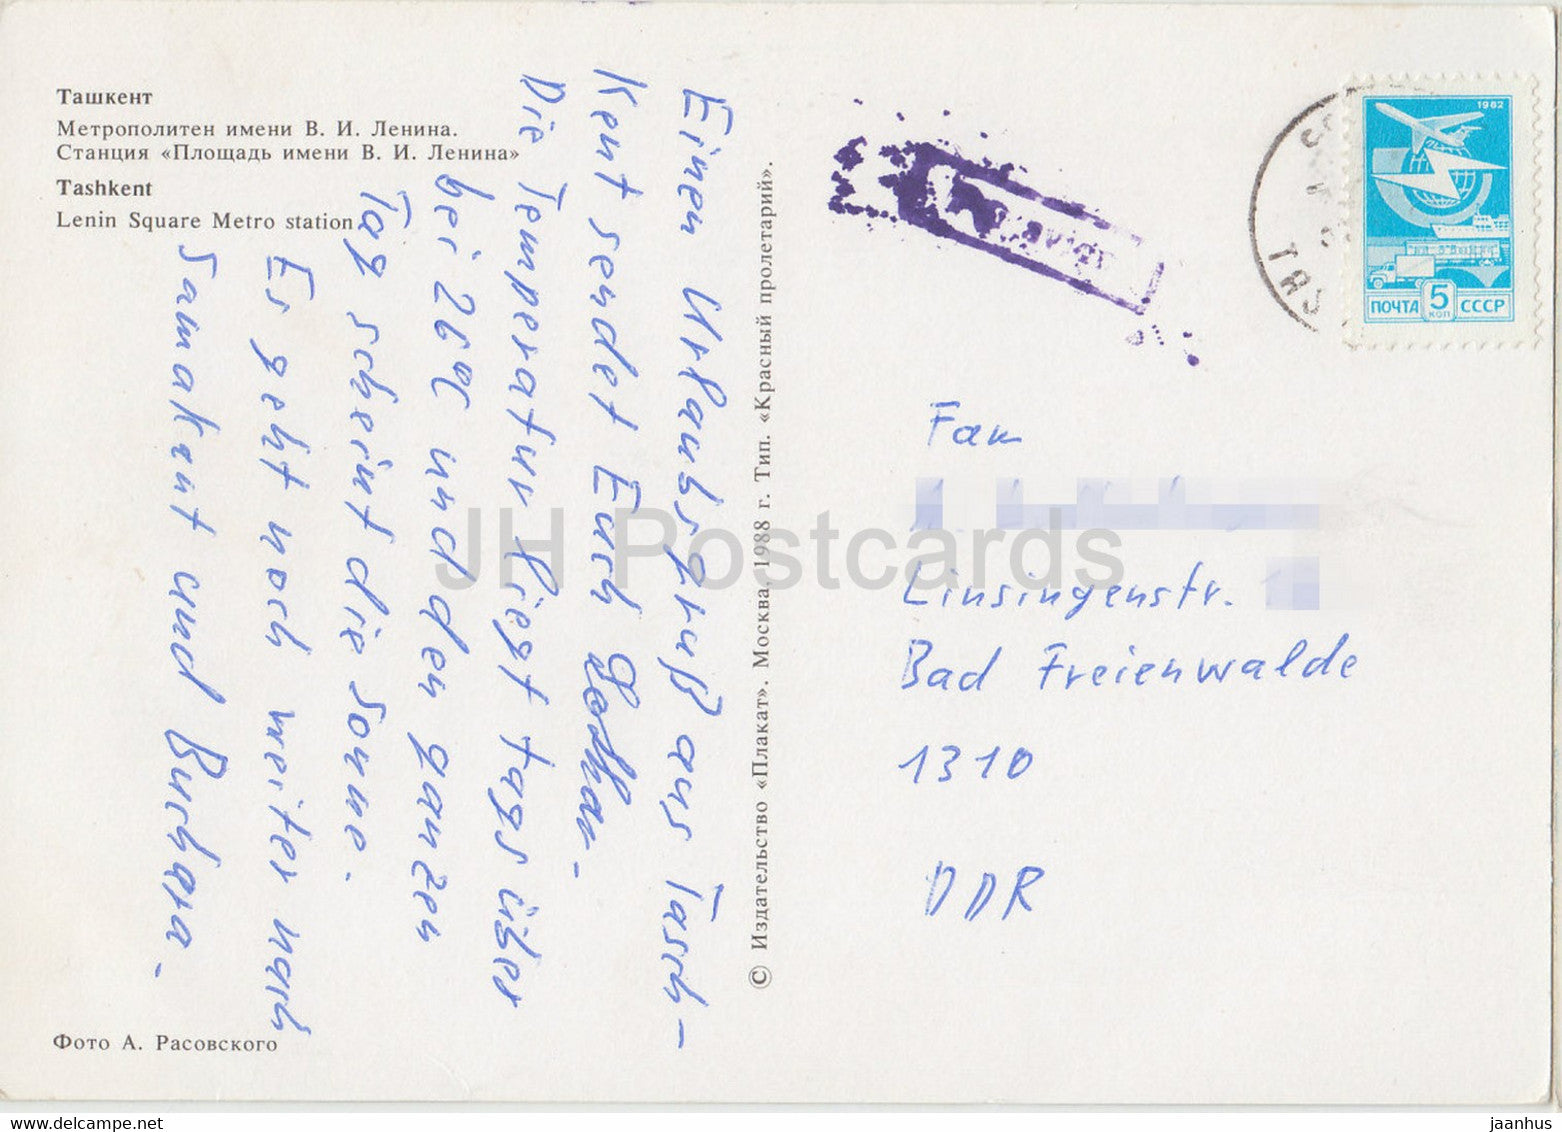 Ташкент
Метрополитен имени В. И. Ленина.
Станция «Площадь имени В. И. Ленина»
Tashkent
Lenin Square Metro station
Einen Urlaubsgruß aus Tasch-
kent sendet Euch Lothar.
Die Temperatur liegt tagsüber
bei 26°C und den ganzen
Tag scheint die Sonne.
Es geht noch weiter nach
Samakant und Buchara.
Фото А. Расовского
© Издательство «Плакат». Москва, 1988 г. Тип. «Красный пролетарий».
1982
ПОЧТА 5 КОП СССР
Fam
Linsingenstr.
Bad Freienwalde
1310
DDR
JH Postcards
www.delcampe.net
jaanhus